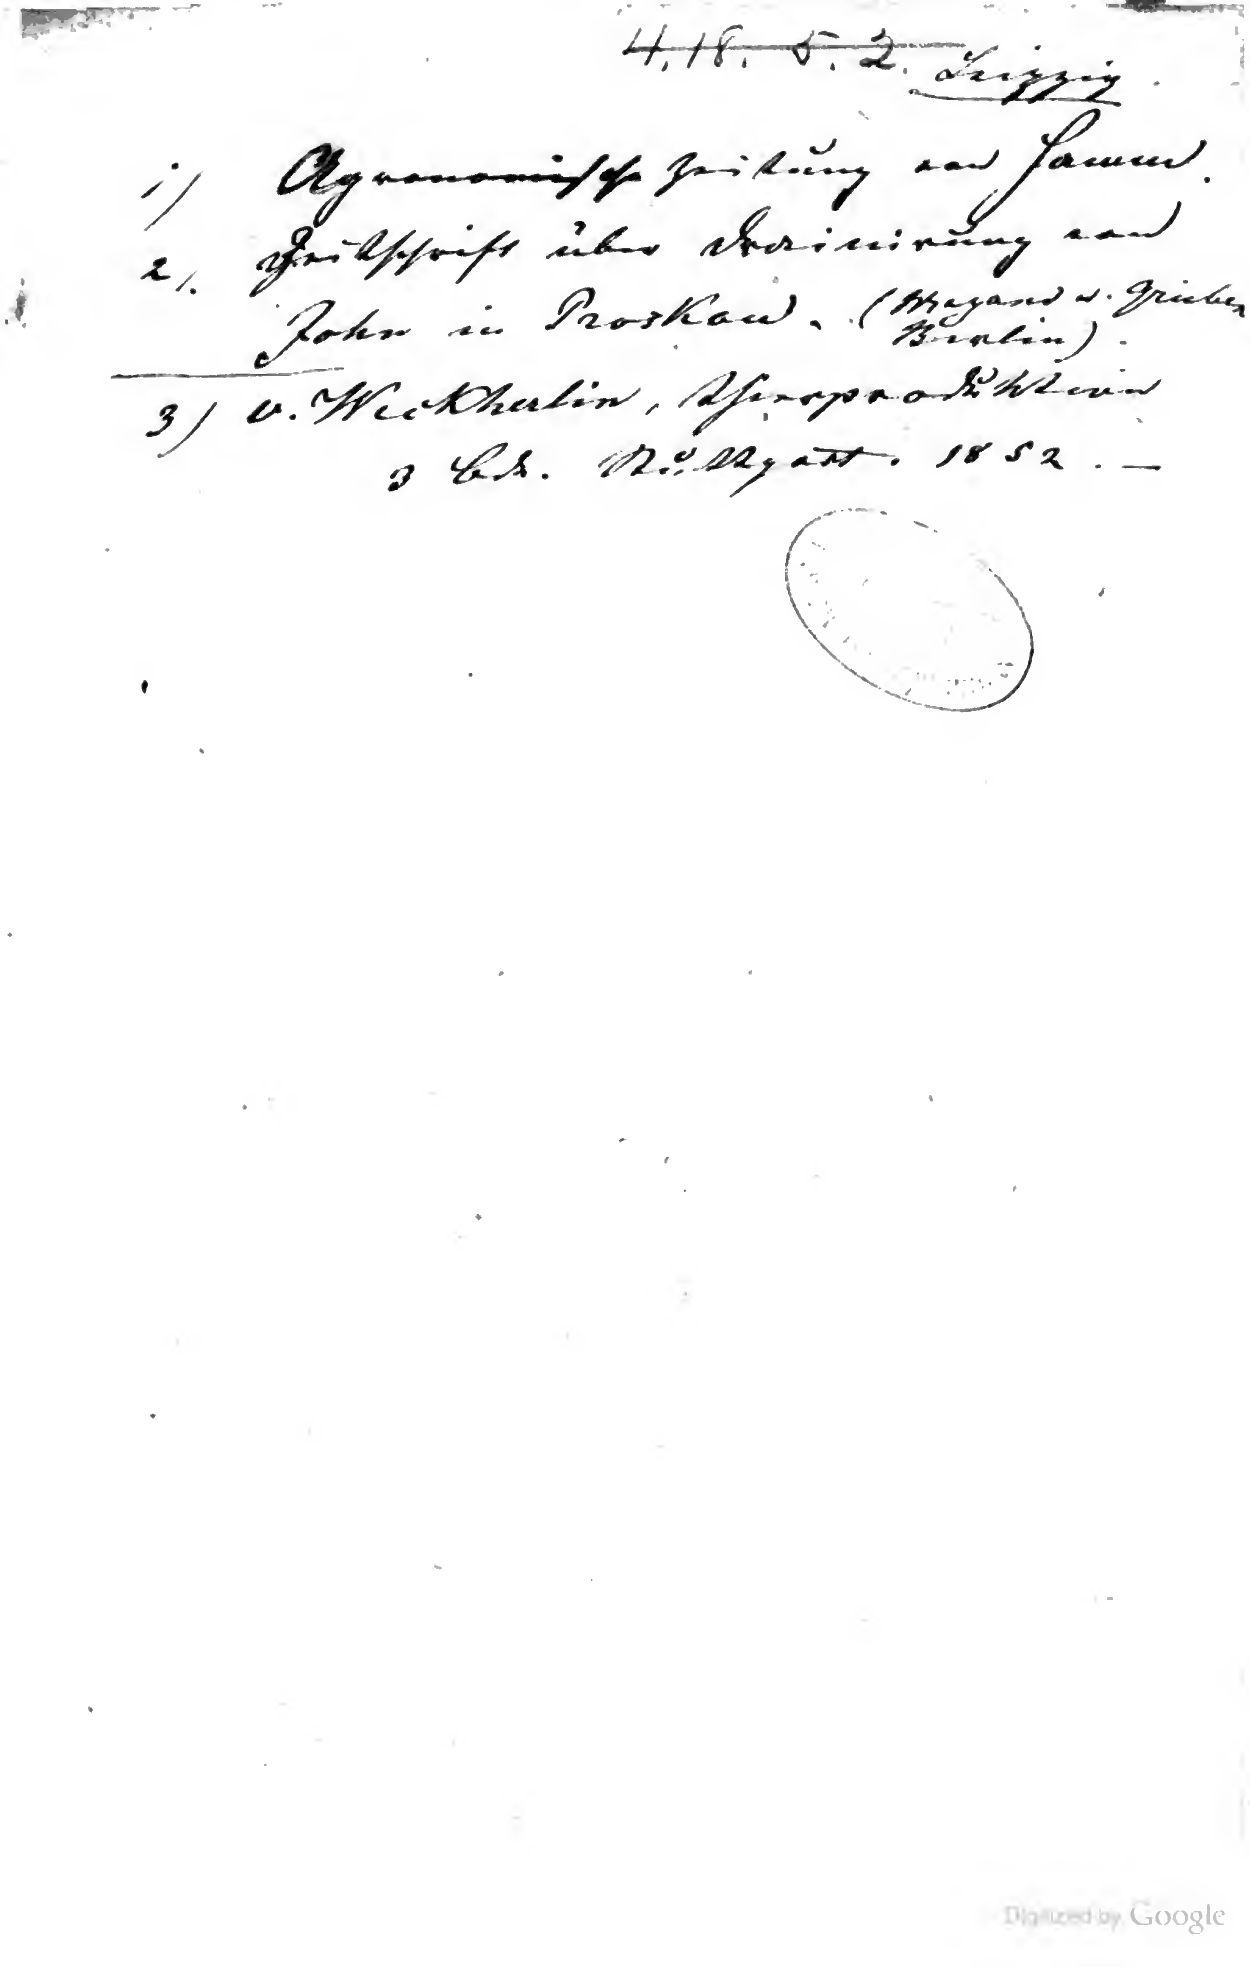 4.18.5.2.
Leipzig
1) Agronomische Zeitung von Hamm.
2). Zeitschrift über Drainirung von
John in Proskau. (Wiegand u. Grieben
Berlin).
3) v. Weckherlin, Thierproduktion
3 Bde. Stuttgart. 1852. —
Digitized by Google